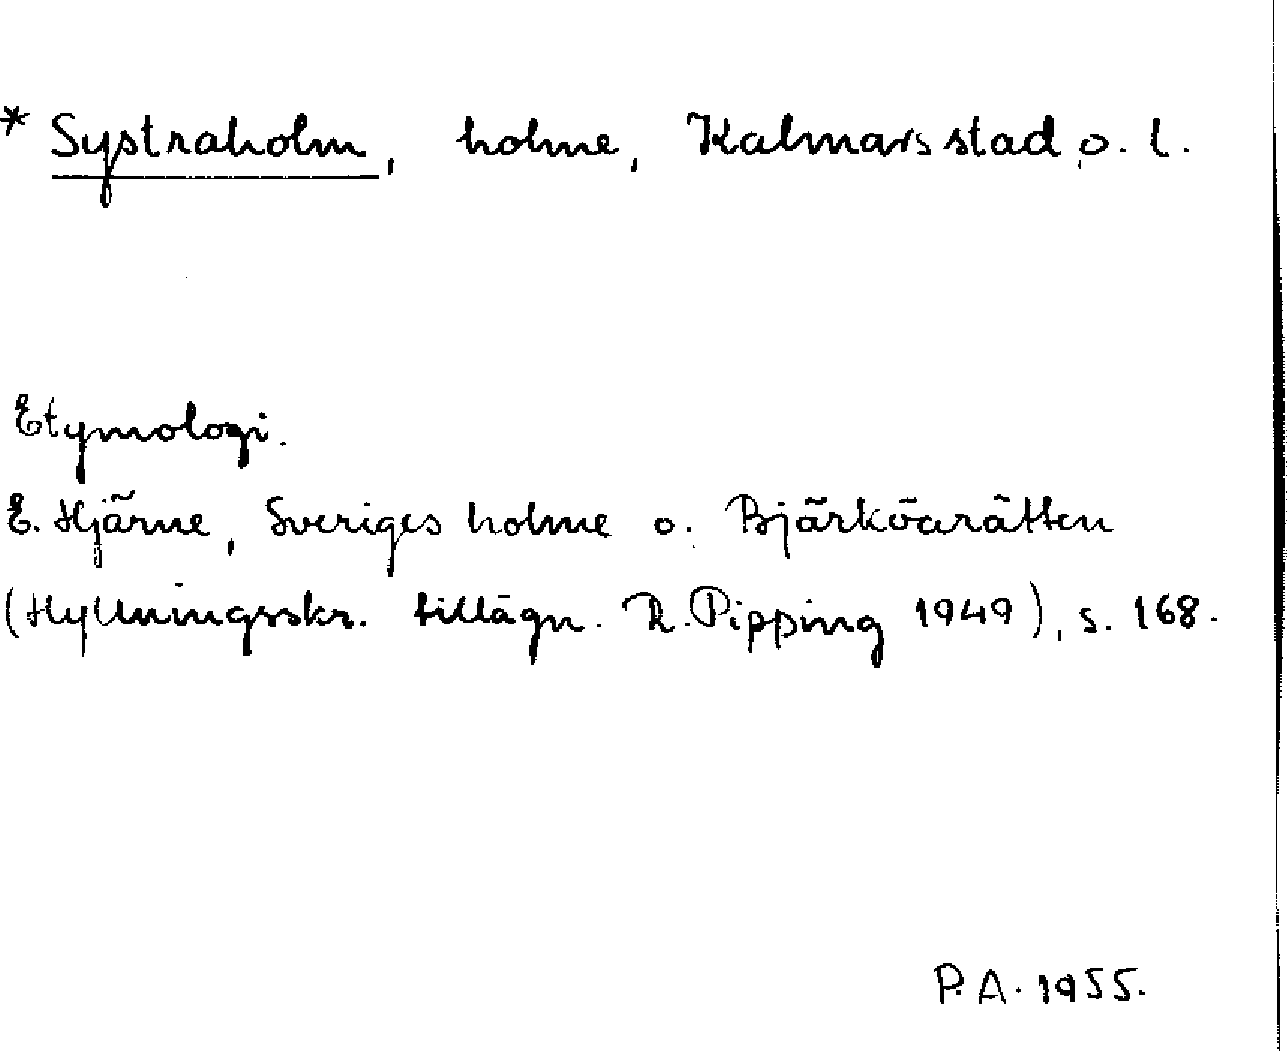 * Systraholm, holme, Kalmars stad o. l.
Etymologi.
E. Hjärne, Sveriges holme o. Bjärköarätten
(Hyllningsskr. tillägn. R. Pipping 1949), s. 168.
P. A. 1955.